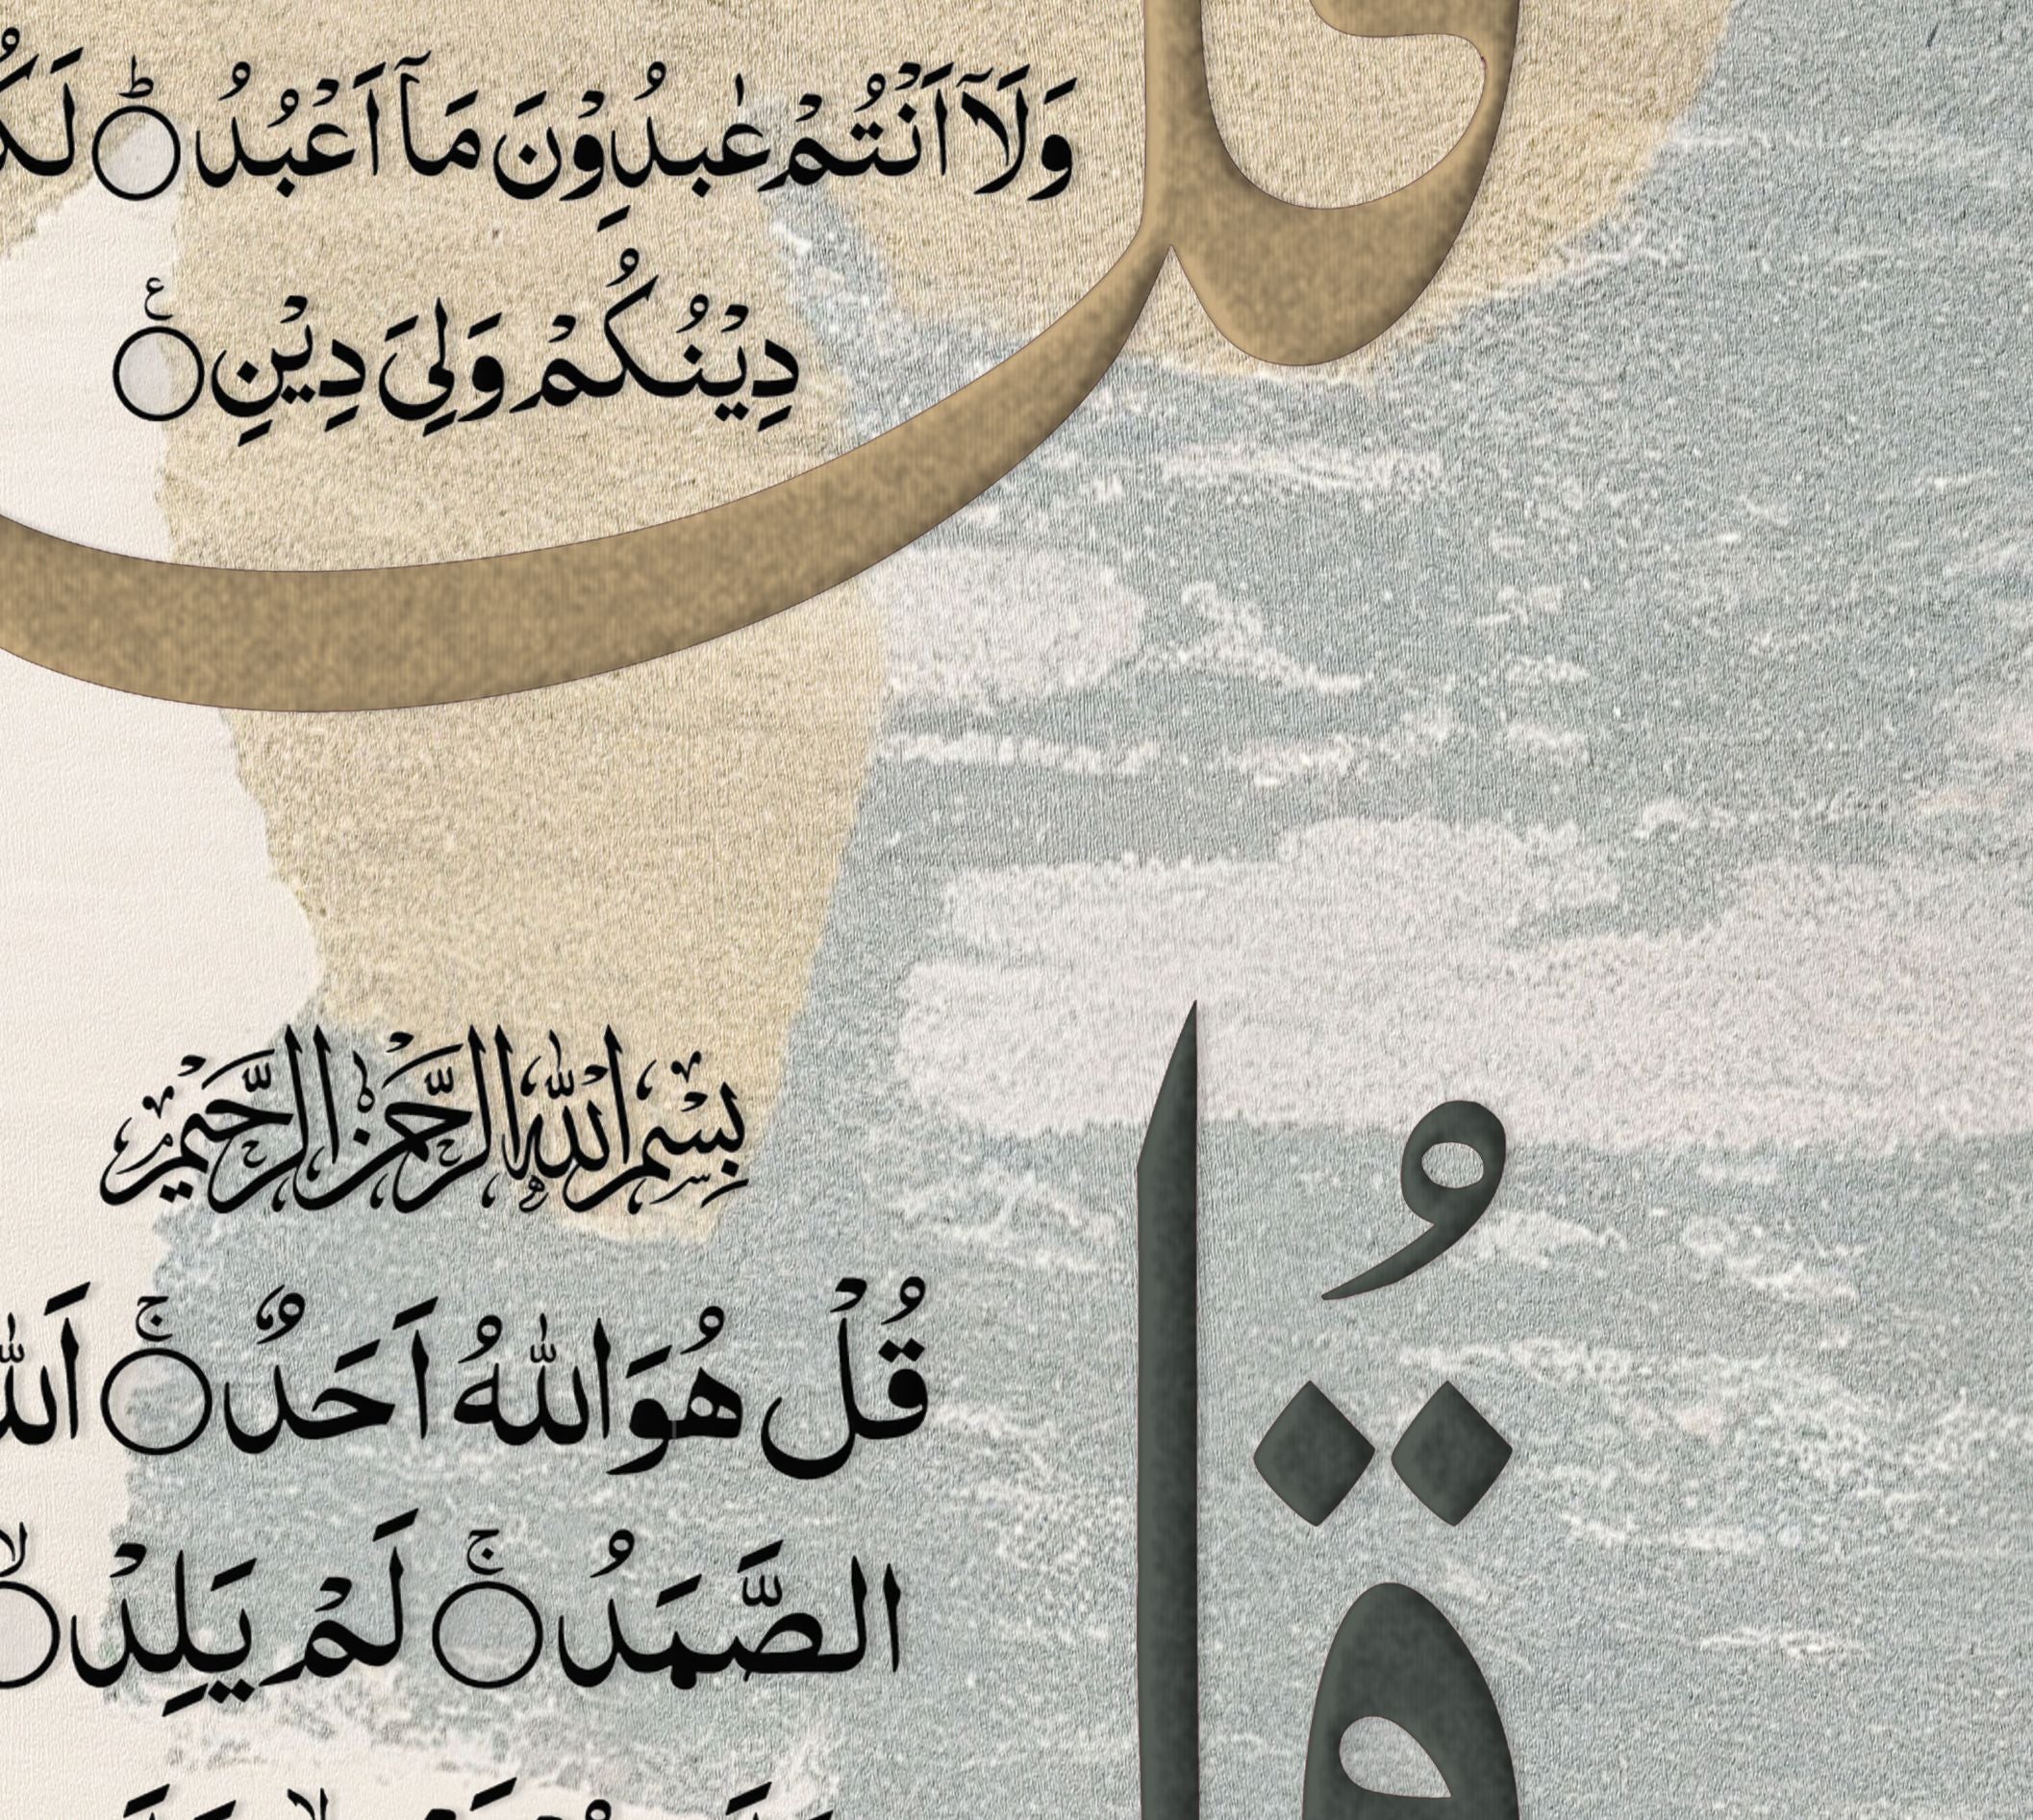 وَلَآ اَنْتُمْ عٰبِدُوْنَ مَآ اَعْبُدُ ؕ
دِيْنُكُمْ وَلِيَ دِيْنِ
بِسْمِ اللّٰهِ الرَّحْمٰنِ الرَّحِيْمِ
قُلْ هُوَ اللّٰهُ اَحَدٌ ۚ
الصَّمَدُ ۚ لَمْ يَلِدْ ۙ
قُل